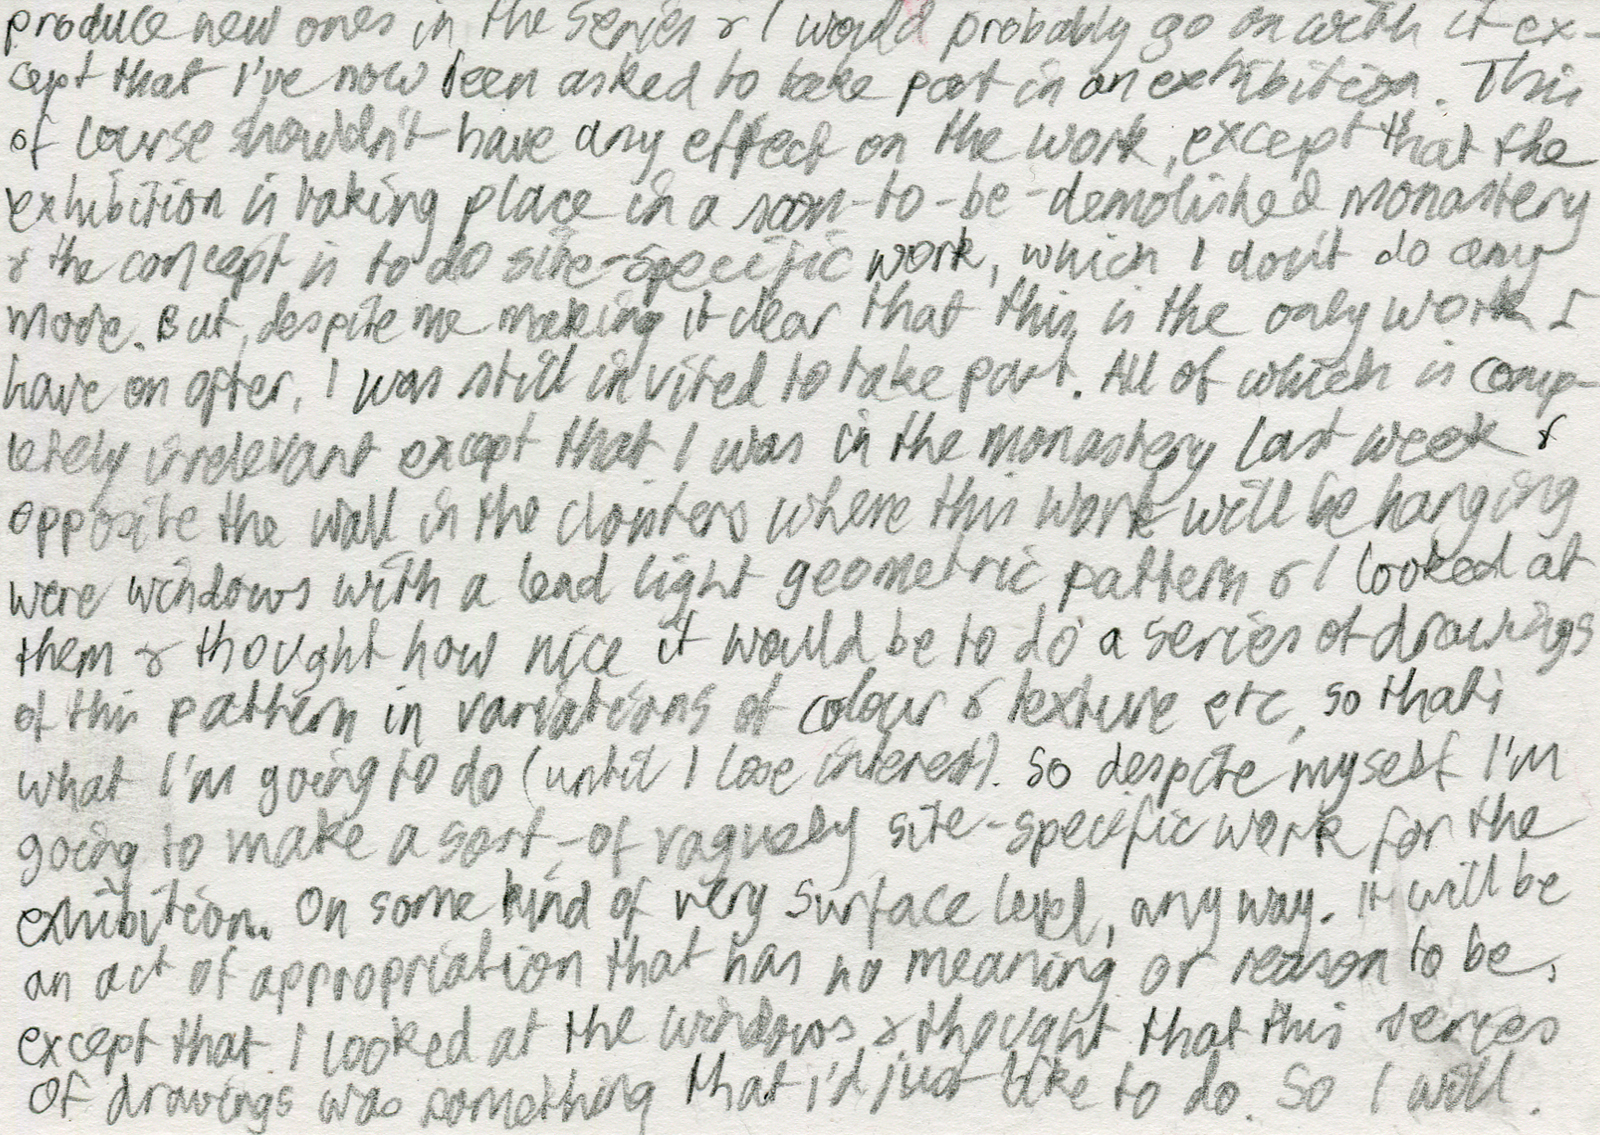 produce new ones in the series & I would probably go on with it ex-
cept that I've now been asked to take part in an exhibition. This
of course shouldn't have any effect on the work, except that the
exhibition is taking place in a soon-to-be-demolished monastery
& the concept is to do site-specific work, which I don't do any
more. But, despite me making it clear that this is the only work I
have on offer, I was still invited to take part. All of which is comp-
letely irrelevant except that I was in the monastery last week &
opposite the wall in the cloisters where this work will be hanging
were windows with a lead light geometric pattern & I looked at
them & thought how nice it would be to do a series of drawings
of this pattern in variations of colour & texture etc, so that's
what I'm going to do (until I lose interest). So despite myself I'm
going to make a sort-of vaguely site-specific work for the
exhibition. On some kind of very surface level, anyway. It will be
an act of appropriation that has no meaning or reason to be,
except that I looked at the windows & thought that this series
of drawings was something that I'd just like to do. So I will.